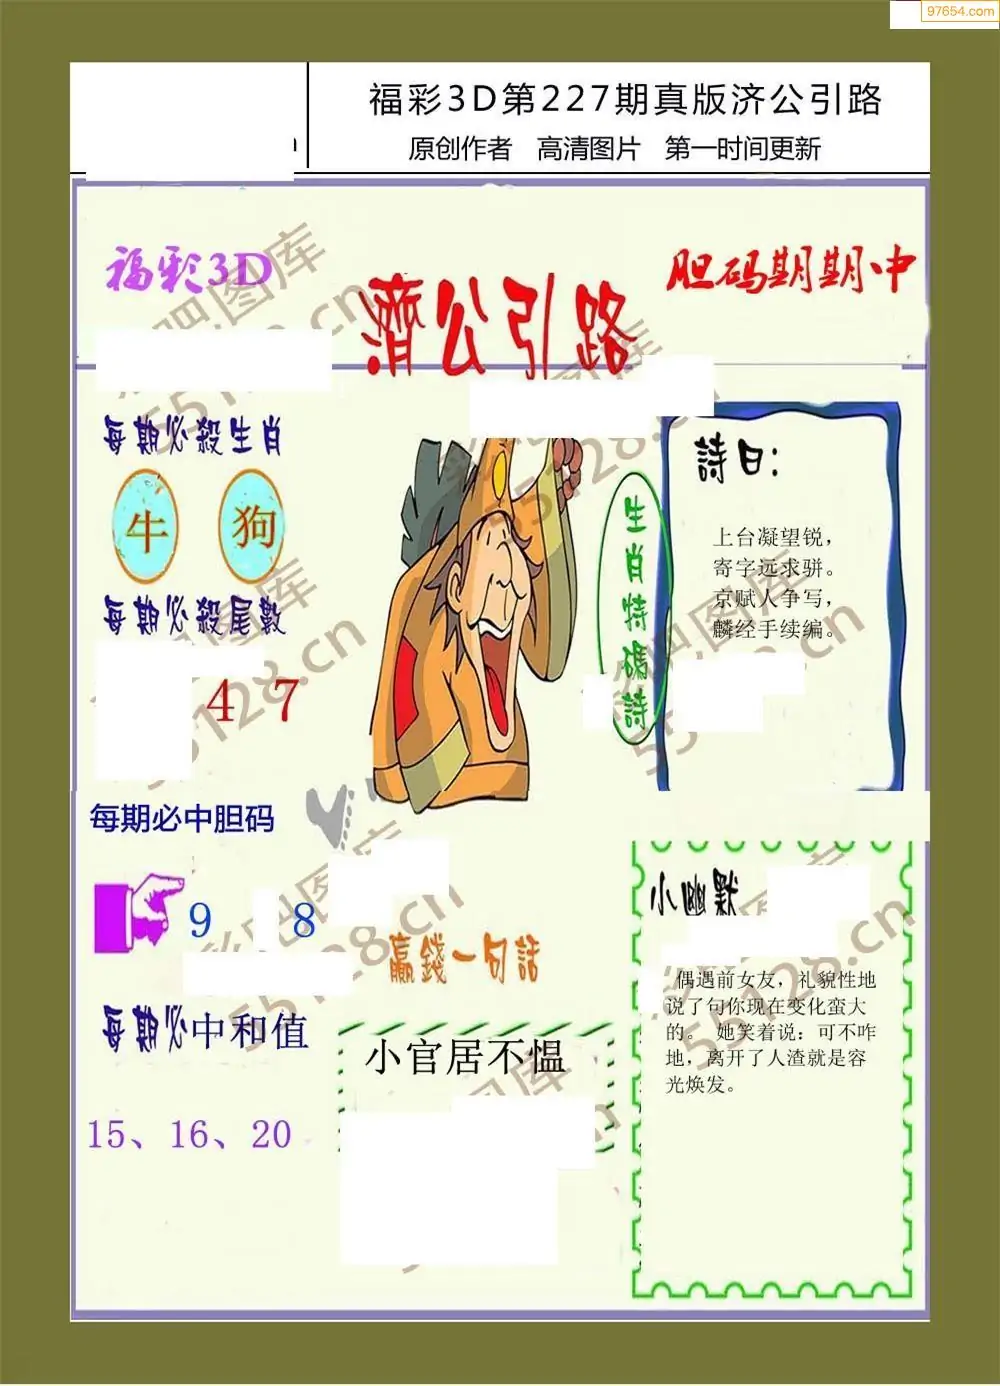 97654.com
福彩3D第227期真版济公引路
原创作者 高清图片 第一时间更新
福彩3D
濟公引路
胆码期期中
每期必殺生肖
牛 狗
每期必殺尾數
4 7
每期必中胆码
9 8
每期必中和值
15、16、20
生肖特碼詩
詩曰：
上台凝望锐，
寄字远求骈。
京赋人争写，
麟经手续编。
赢錢一句話
小官居不愠
小幽默
偶遇前女友，礼貌性地
说了句你现在变化蛮大
的。 她笑着说：可不咋
地，离开了人渣就是容
光焕发。
55128.cn
55128.cn
55128.cn
55128.cn
55128.cn